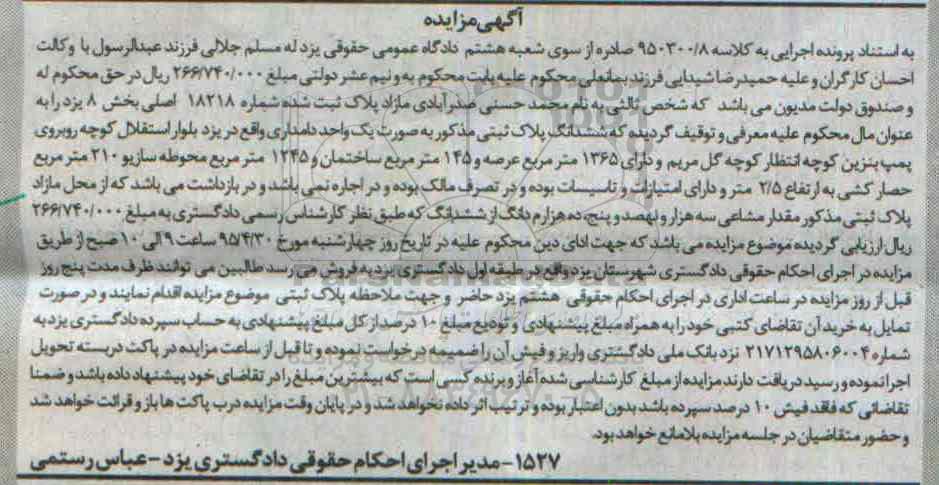 آگهی مزایده
به استناد پرونده اجرایی به کلاسه ۹۵۰۳۰۰/۸ صادره از سوی شعبه هشتم دادگاه عمومی حقوقی یزد له مسلم جلالی فرزند عبدالرسول با وکالت
احسان کارگران و علیه حمیدرضا شیدایی فرزند بمانعلی محکوم علیه بابت محکوم به و نیم عشر دولتی مبلغ ۲۶۶/۷۴۰/۰۰۰ ریال در حق محکوم له
و صندوق دولت مدیون می باشد که شخص ثالثی به نام محمد حسنی صدرآبادی مازاد پلاک ثبت شده شماره ۱۸۲۱۸ اصلی بخش ۸ یزد را به
عنوان مال محکوم علیه معرفی و توقیف گردیده که ششدانگ پلاک ثبتی مذکور به صورت یک واحد دامداری واقع در یزد بلوار استقلال کوچه روبروی
پمپ بنزین کوچه انتظار کوچه گل مریم و دارای ۱۳۶۵ متر مربع عرصه و ۱۴۵ متر مربع ساختمان و ۱۲۴۵ متر مربع محوطه سازی و ۲۱۰ متر مربع
حصار کشی به ارتفاع ۲/۵ متر و دارای امتیازات و تاسیسات بوده و در تصرف مالک بوده و در اجاره نمی باشد و در بازداشت می باشد که از محل مازاد
پلاک ثبتی مذکور مقدار مشاعی سه هزار و نهصد و پنج، ده هزارم دانگ از ششدانگ که طبق نظر کارشناس رسمی دادگستری به مبلغ ۲۶۶/۷۴۰/۰۰۰
ریال ارزیابی گردیده موضوع مزایده می باشد که جهت ادای دین محکوم علیه در تاریخ روز چهارشنبه مورخ ۹۵/۴/۳۰ ساعت ۹ الی ۱۰ صبح از طریق
مزایده در اجرای احکام حقوقی دادگستری شهرستان یزد واقع در طبقه اول دادگستری یزد به فروش می رسد طالبین می توانند ظرف مدت پنج روز
قبل از روز مزایده در ساعت اداری در اجرای احکام حقوقی هشتم یزد حاضر و جهت ملاحظه پلاک ثبتی موضوع مزایده اقدام نمایند و در صورت
تمایل به خرید آن تقاضای کتبی خود را به همراه مبلغ پیشنهادی و تودیع مبلغ ۱۰ درصد از کل مبلغ پیشنهادی به حساب سپرده دادگستری یزد به
شماره ۲۱۷۱۲۹۵۸۰۶۰۰۴ نزد بانک ملی دادگستری واریز و فیش آن را ضمیمه درخواست نموده و تا قبل از ساعت مزایده در پاکت دربسته تحویل
اجرا نموده و رسید دریافت دارند مزایده از مبلغ کارشناسی شده آغاز و برنده کسی است که بیشترین مبلغ را در تقاضای خود پیشنهاد داده باشد و ضمنا
تقاضائی که فاقد فیش ۱۰ درصد سپرده باشد بدون اعتبار بوده و ترتیب اثر داده نخواهد شد و در پایان وقت مزایده درب پاکت ها باز و قرائت خواهد شد
و حضور متقاضیان در جلسه مزایده بلامانع خواهد بود.
۱۵۲۷- مدیر اجرای احکام حقوقی دادگستری یزد - عباس رستمی